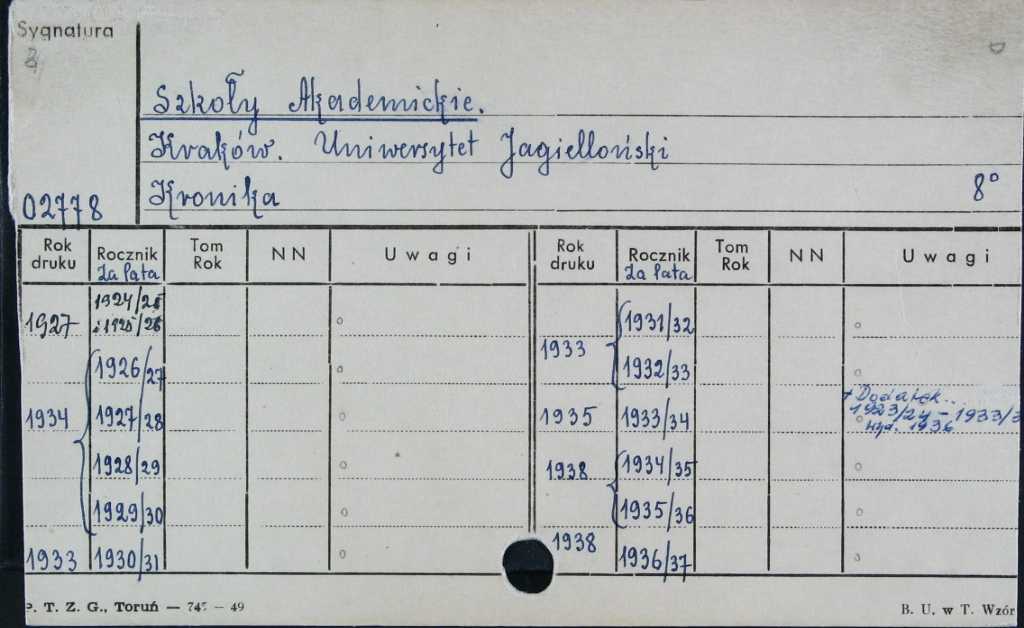 Sygnatura
Szkoły Akademickie.
Kraków. Uniwersytet Jagielloński
02778 Kronika 8°
Rok druku Rocznik Za lata Tom Rok NN Uwagi Rok druku Rocznik Za lata Tom Rok NN Uwagi
1927 1924/25
i 1925/26
1931/32
1926/27
1933 1932/33
1934 1927/28
1935 1933/34 + Dodatek..
1923/24 - 1933/3
wyd. 1936
1928/29
1938 1934/35
1929/30
1935/36
1933 1930/31
1938 1936/37
P. T. Z. G., Toruń — 745 — 49 B. U. w T. Wzór